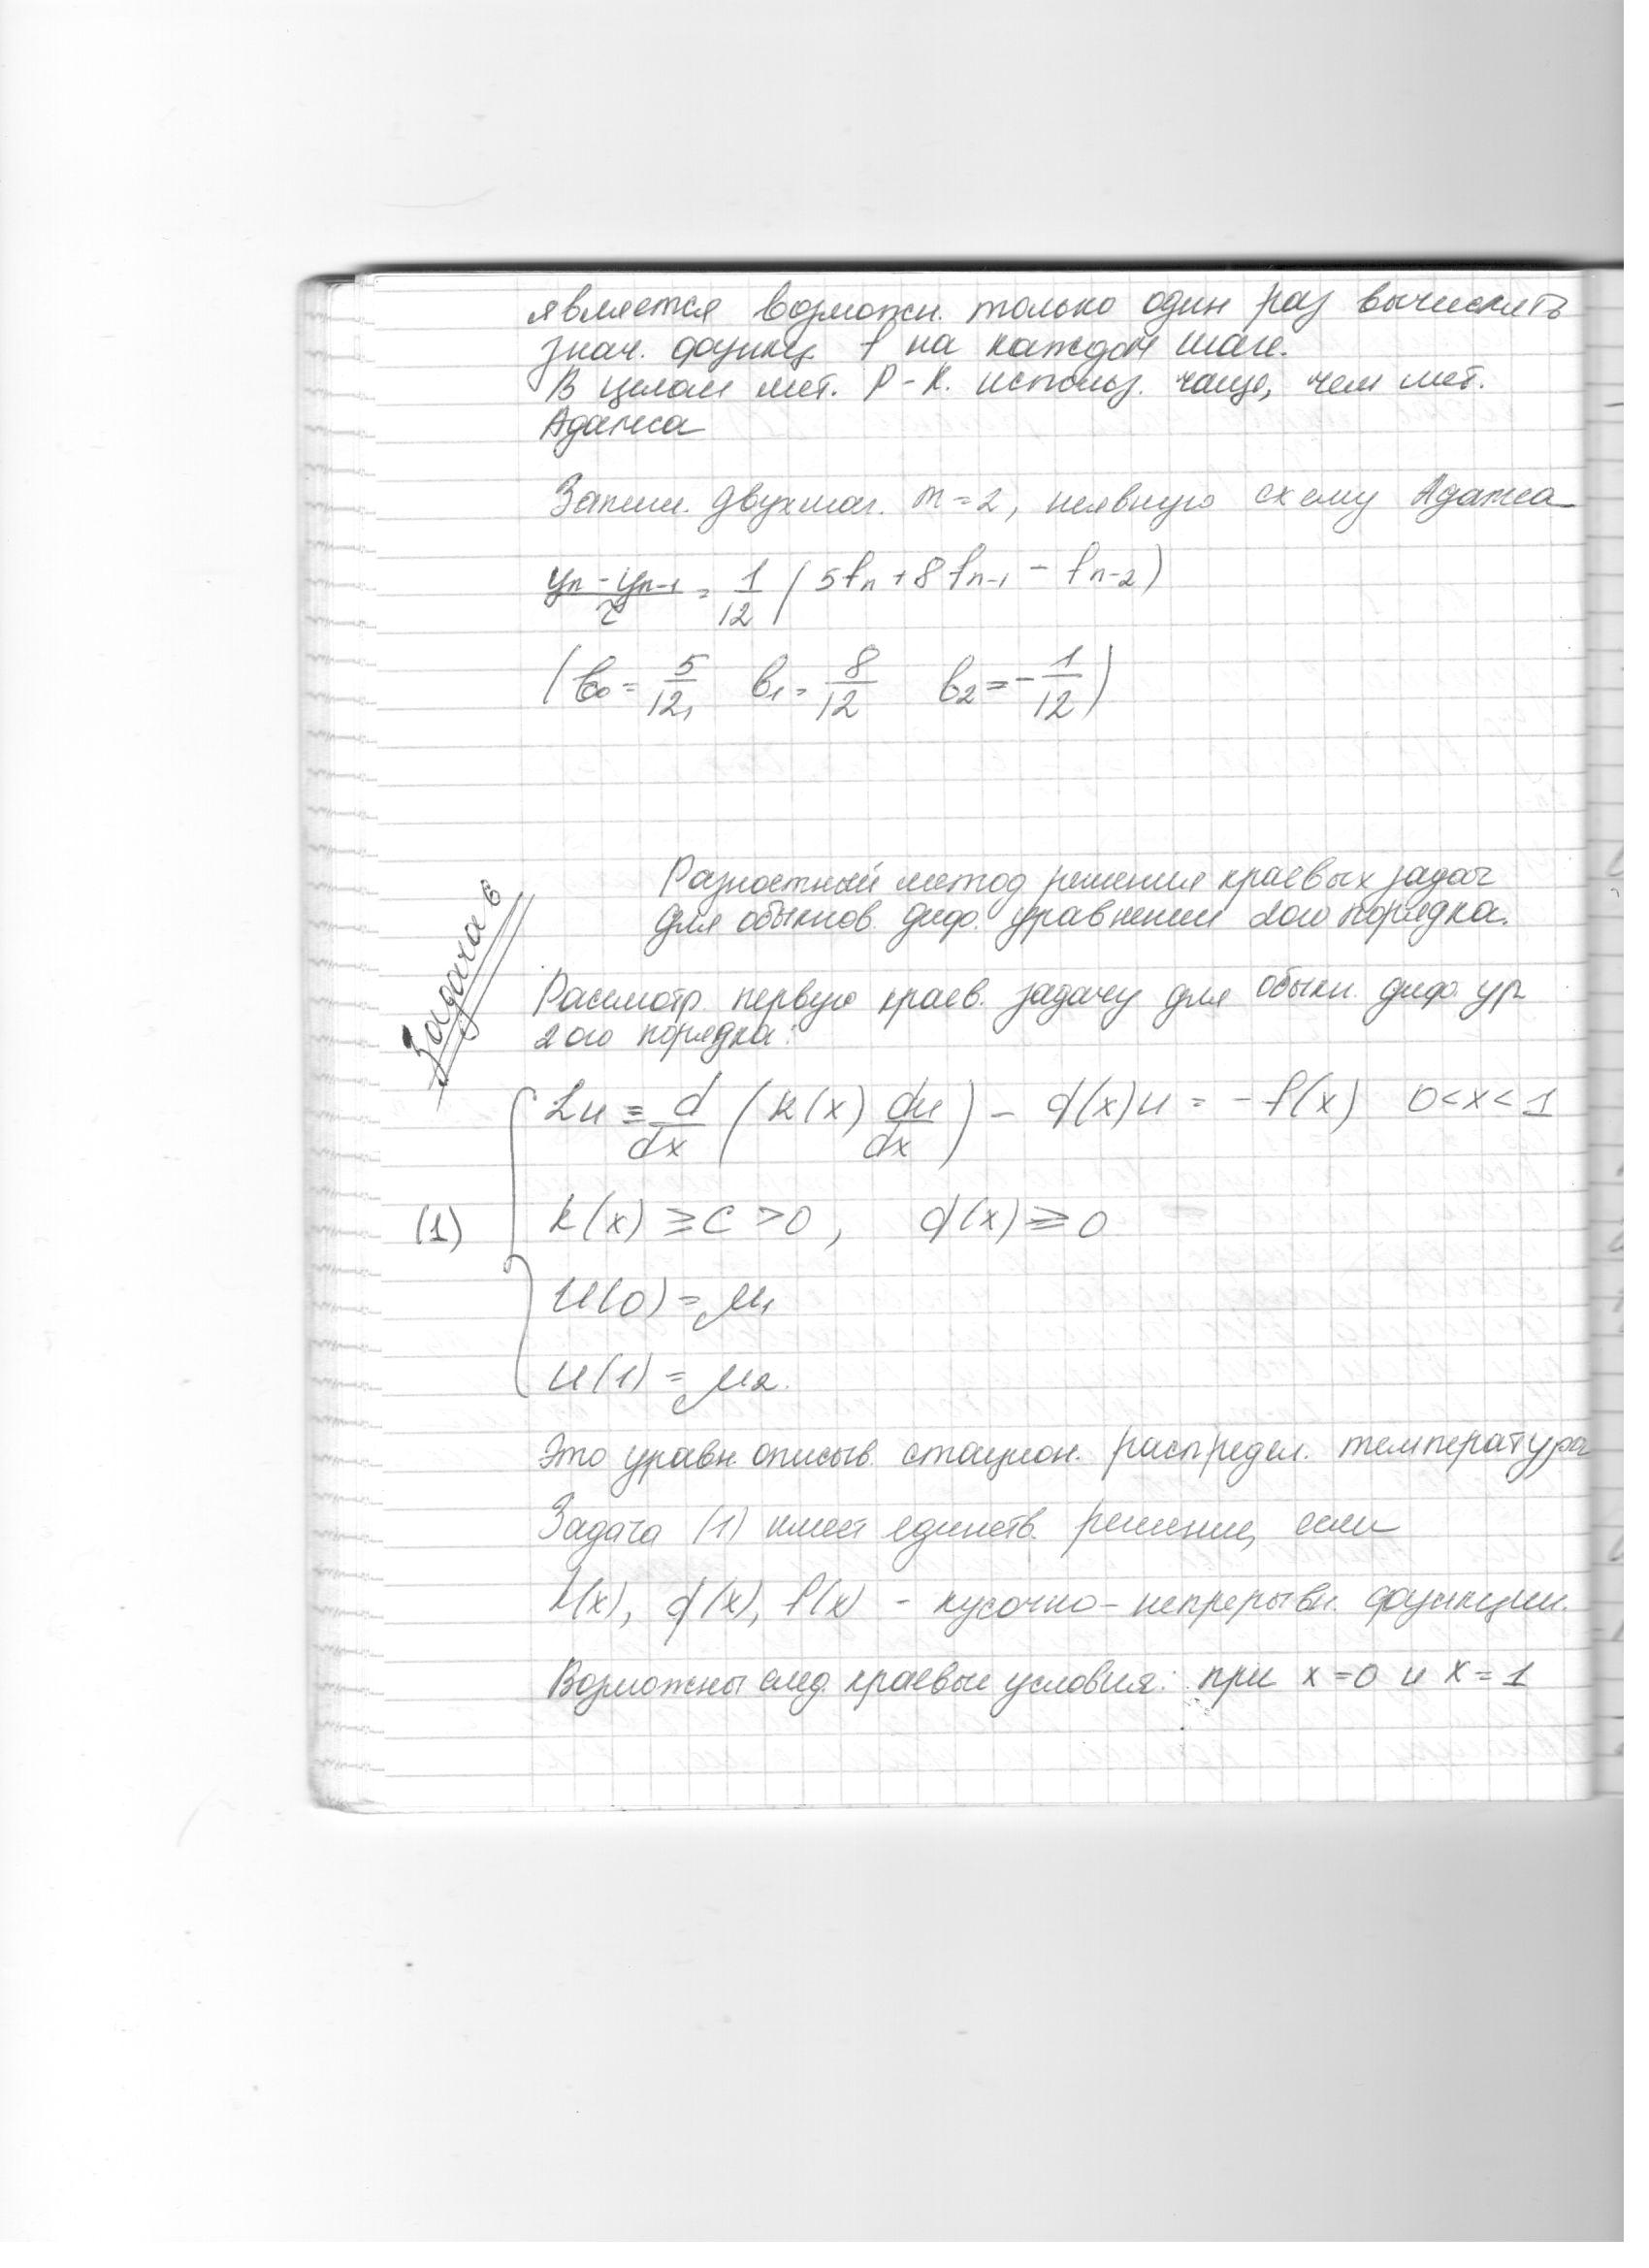 является возможн. только один раз вычислить
знач. функц. f на каждом шаге.
В целом мет. Р-К. использ. чаще, чем мет.
Адамса
Запиш. двухшаг. m=2, неявную схему Адамса
(yn - yn-1)/τ = 1/12 (5fn + 8fn-1 - fn-2)
(b0 = 5/12, b1 = 8/12 b2 = -1/12)
Разностный метод решения краевых задач
для обыкнов. диф. уравнений 2ого порядка.
Задача 6
Рассмотр. первую краев. задачу для обыкн. диф. ур
2ого порядка:
Lu ≡ d/dx (k(x) du/dx) - q(x)u = -f(x) 0<x<1
(1) k(x) ≥ c > 0, q(x) ≥ 0
u(0) = μ1
u(1) = μ2.
Это уравн. описыв. стацион. распредел. температура
Задача (1) имеет единств. решение, если
k(x), q(x), f(x) - кусочно-непрерывн. функции.
Возможны след. краевые условия: при x=0 и x=1